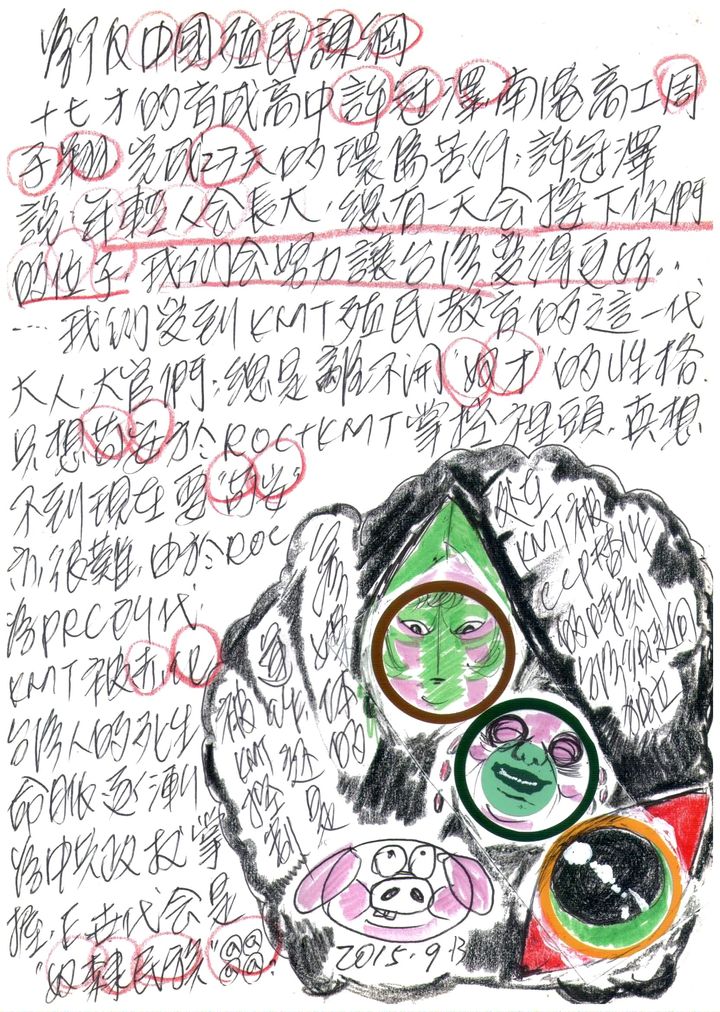 中國殖民課綱
十七才的育成高中許冠澤,南港高工周
子翔完成27天的環島苦行,許冠澤
說,年輕人会長大,總有一天会接下你們
的位子,我们会努力讓台湾變得更好…
…我们受到KMT殖民教育的這一代
大人,大官們,總是離不開"奴才"的性格.
只想苟安於ROC+KMT掌控裡頭,真想
不到現在要"苟安"
亦很難,由於ROC
為PRC取代,
KMT被赤化
台湾人的死生
命脈逐漸
為中共政权掌
控,下世代会是
"奴隸民族"
處在
KMT被
CCP赤化
的時刻
媒体的
還是
被
KMT
控制
2015.9.13